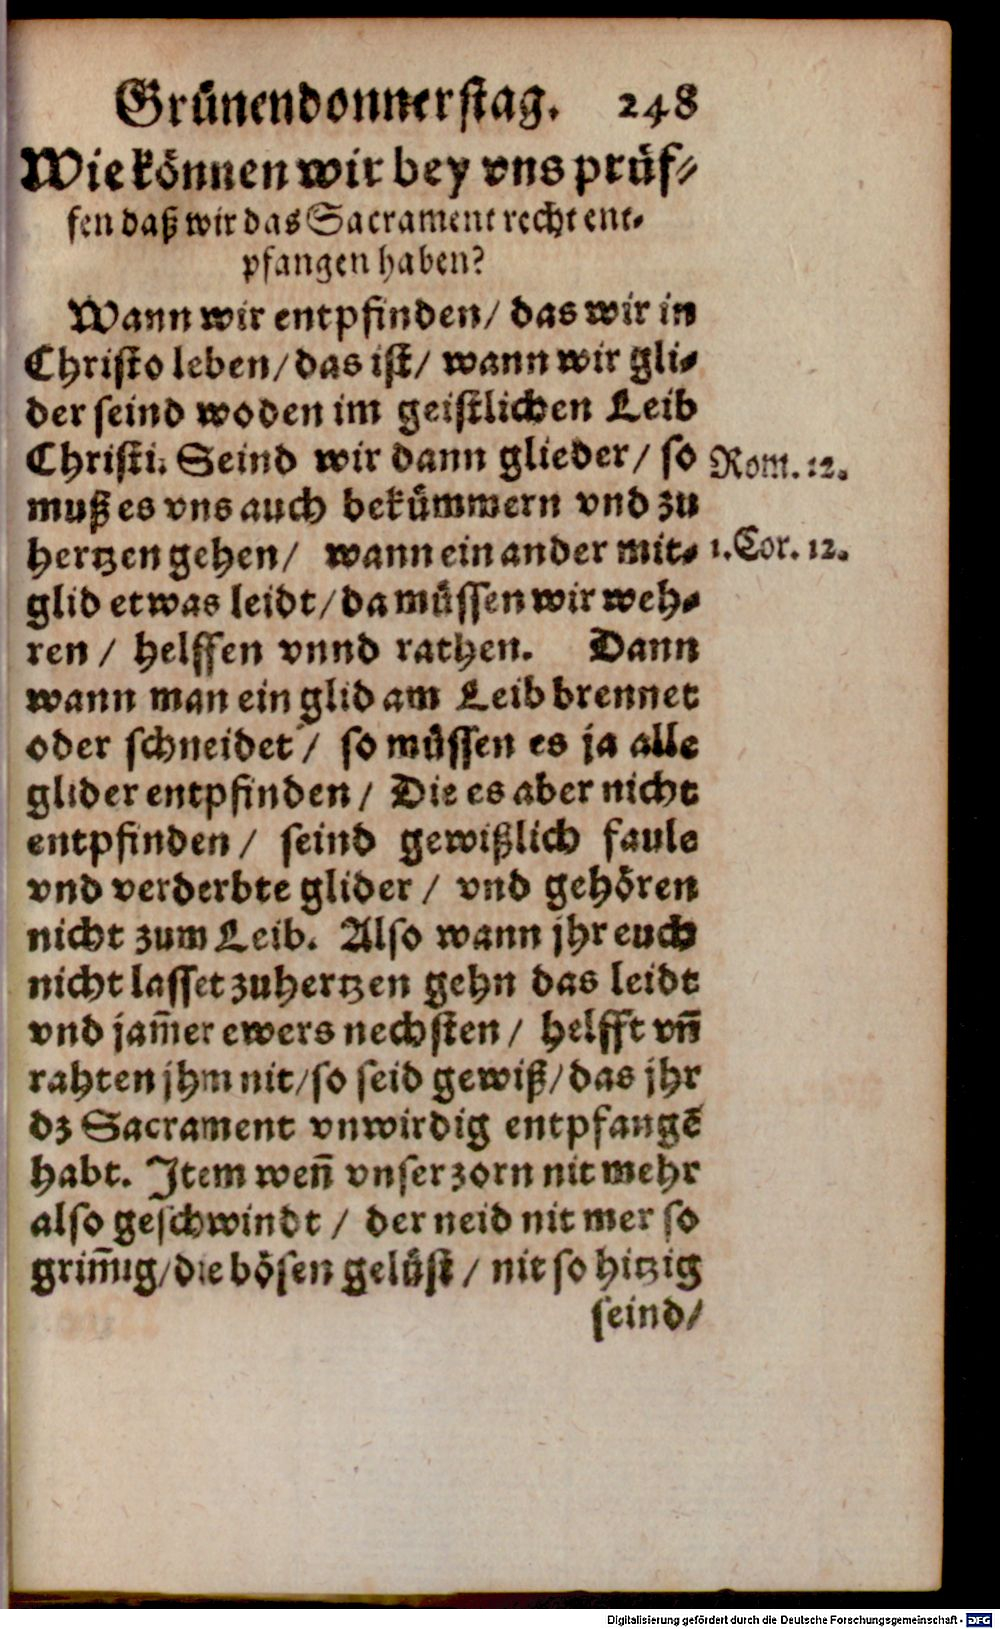 Grůnendonnerstag. 248
Wie kőnnen wir bey vns průf⸗
fen daß wir das Sacrament recht ent⸗
pfangen haben?
Wann wir entpfinden/ das wir in
Christo leben/ das ist/ wann wir gli⸗
der seind woden im geistlichen Leib
Christi. Seind wir dann glieder/ so
Rom. 12.
muß es vns auch bekům̃ern vnd zu
hertzen gehen/ wann ein ander mit⸗
1. Cor. 12.
glid etwas leidt/ da můssen wir weh⸗
ren/ helffen vnnd rathen. Dann
wann man ein glid am Leib brennet
oder schneidet/ so můssen es ja alle
glider entpfinden/ Die es aber nicht
entpfinden/ seind gewißlich faule
vnd verderbte glider/ vnd gehőren
nicht zum Leib. Also wann jhr euch
nicht lasset zuhertzen gehn das leidt
vnd jam̃er ewers nechsten/ helfft vñ
rahten jhm nit/ so seid gewiß/ das jhr
dz Sacrament vnwirdig entpfangẽ
habt. Item weñ vnser zorn nit mehr
also geschwindt/ der neid nit mer so
grim̃ig/ die bősen gelůst/ nit so hitzig
seind/
Digitalisierung gefördert durch die Deutsche Forschungsgemeinschaft - DFG